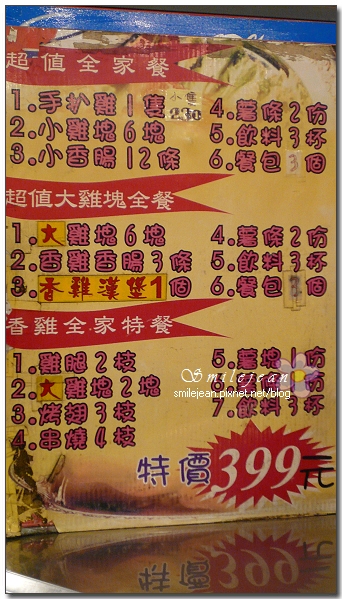 超值全家餐
1.手扒雞1隻 小隻 230
2.小雞塊6塊
3.小香腸12條
4.薯條2份
5.飲料3杯
6.餐包3個
超值大雞塊全餐
1.大雞塊6塊
2.香雞香腸3條
3.香雞漢堡1個
4.薯條2份
5.飲料3杯
6.餐包個
香雞全家特餐
1.雞腿2枝
2.大雞塊2塊
3.烤翅3枝
4.串燒4枝
5.薯塊1份
7.飲料3杯
特價399元
Smilejean
smilejean.pixnet.net/blog